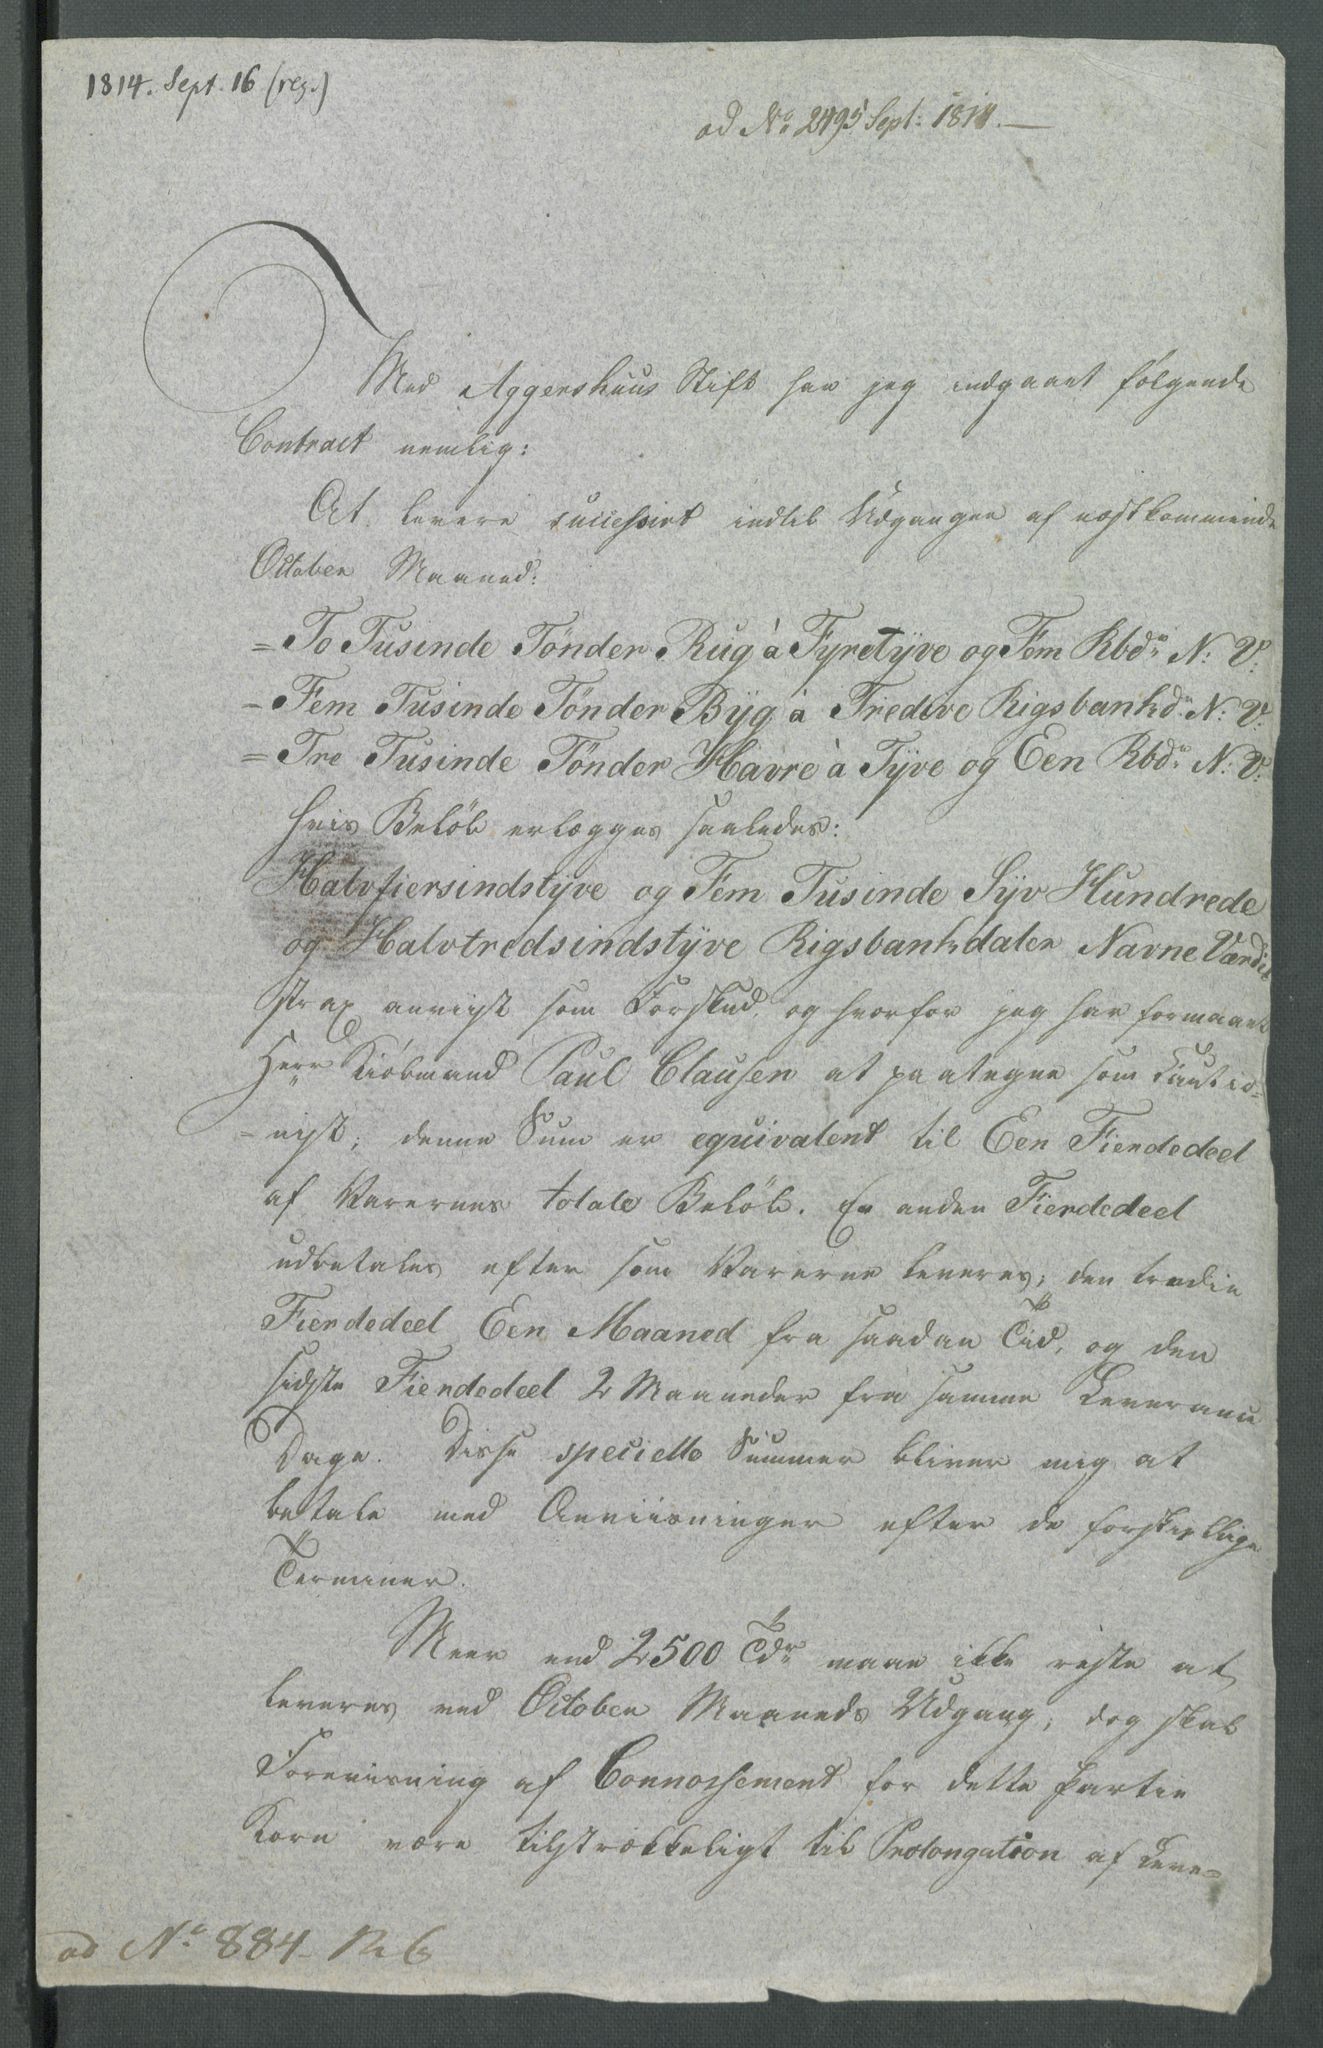 1814. Sept. 16 (reg.)
ad No 2495 Sept: 1814.
Med Aggershuus Stift har jeg indgaaet følgende
Contract nemlig:
At levere successivt indtil Udgangen af næstkommende
October Maaned:
= To Tusinde Tönder Rug à Fyretyve og Fem Rbdr N: V:
= Fem Tusinde Tönder Byg à Tredive Rigsbankdr N: V:
= Tre Tusinde Tönder Havre à Tyve og Een Rbdr N: V:
hvis Beløb erlægges saaledes:
Halvfiersindstyve og Fem Tusinde Syv Hundrede
og Halvtredsindstyve Rigsbankdaler Navne Værdie
strax anviist som Forskud, og hvorfor jeg har formaaet
Herr Kiöbmand Paul Clausen at paategne som Cautio-
-nist; denne Sum er equivalent til Een Fierdedeel
af Varernes totale Beløb. En anden Fierdedeel
udbetales efter som Varerne leveres; den tredie
Fierdedeel Een Maaned fra saadan Tid, og den
sidste Fierdedeel 2 Maaneder fra samme Leverance
Dage. Disse specielle Summer bliver mig at
betale med Anviisninger efter de forskiellige
Terminer.
Meer end 2500 Tdr maae ikke reste at
leveres ved October Maaneds Udgang; dog skal
Forevisning af Connossement for dette Partie
Korn være tilstrækkeligt til Prolongation af Leve-
ad No 884 R 6